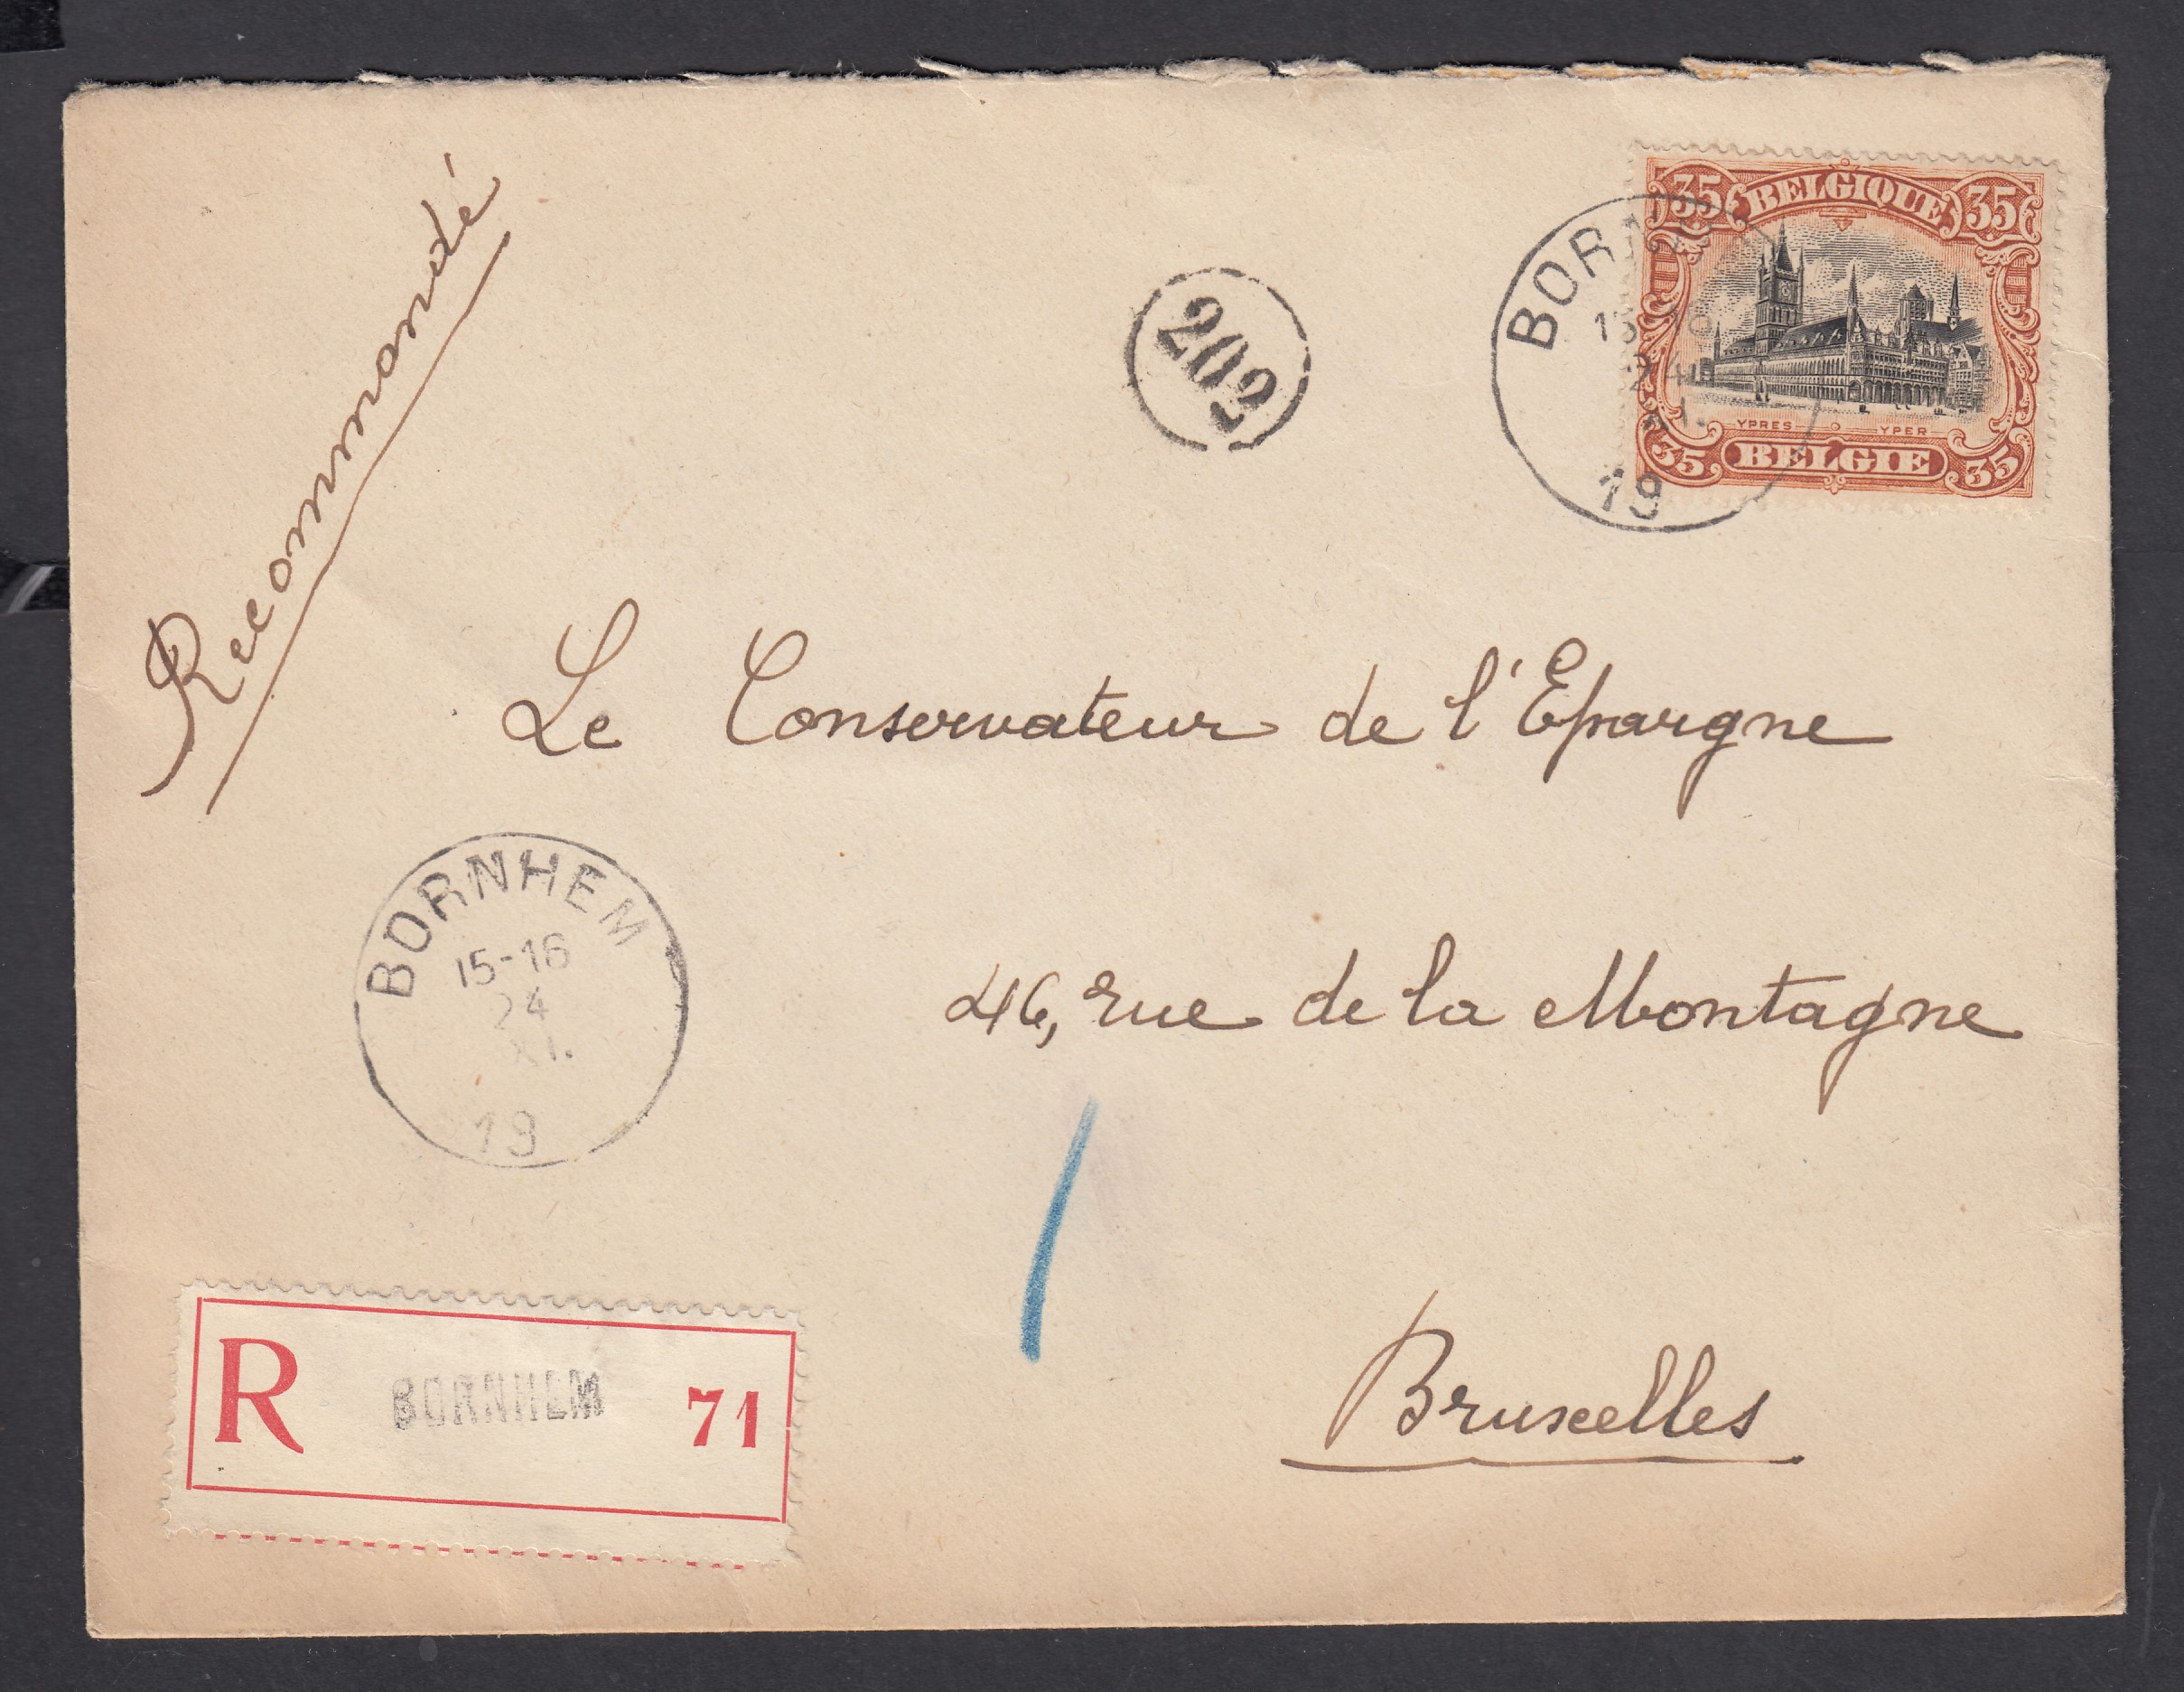 Recommandé
202
35 BELGIQUE 35
YPRES YPER
35 BELGIE 35
BORN
24
19
Le Conservateur de l'Epargne
BORNHEM
15-16
24
XI.
19
46, rue de la Montagne
Bruxelles
R BORNHEM 71